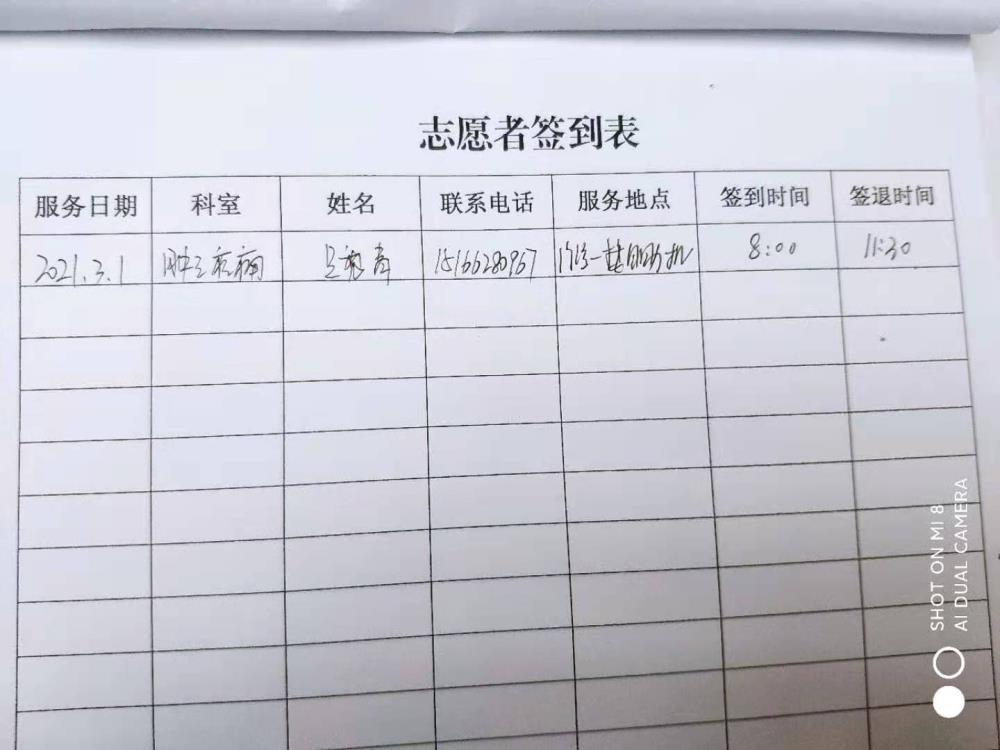 志愿者签到表
服务日期 科室 姓名 联系电话 服务地点 签到时间 签退时间
2021.3.1 15166280967 8:00 11:30
SHOT ON MI 8
AI DUAL CAMERA